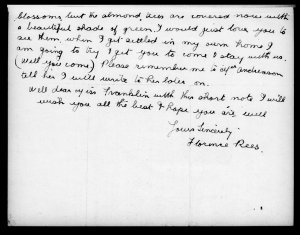 blossoms but the almond trees are covered now with
a beautiful shade of green. I would just love you to
see them, when I get settled in my own home I
am going to try & get you to come & stay with us.
(Will you come) Please remember me to Mrs
tell her I will write to her later on.
Well dear Miss Franklin with this short note I will
wish you all the best & hope you are well
Yours Sincerely
Florence Rees.